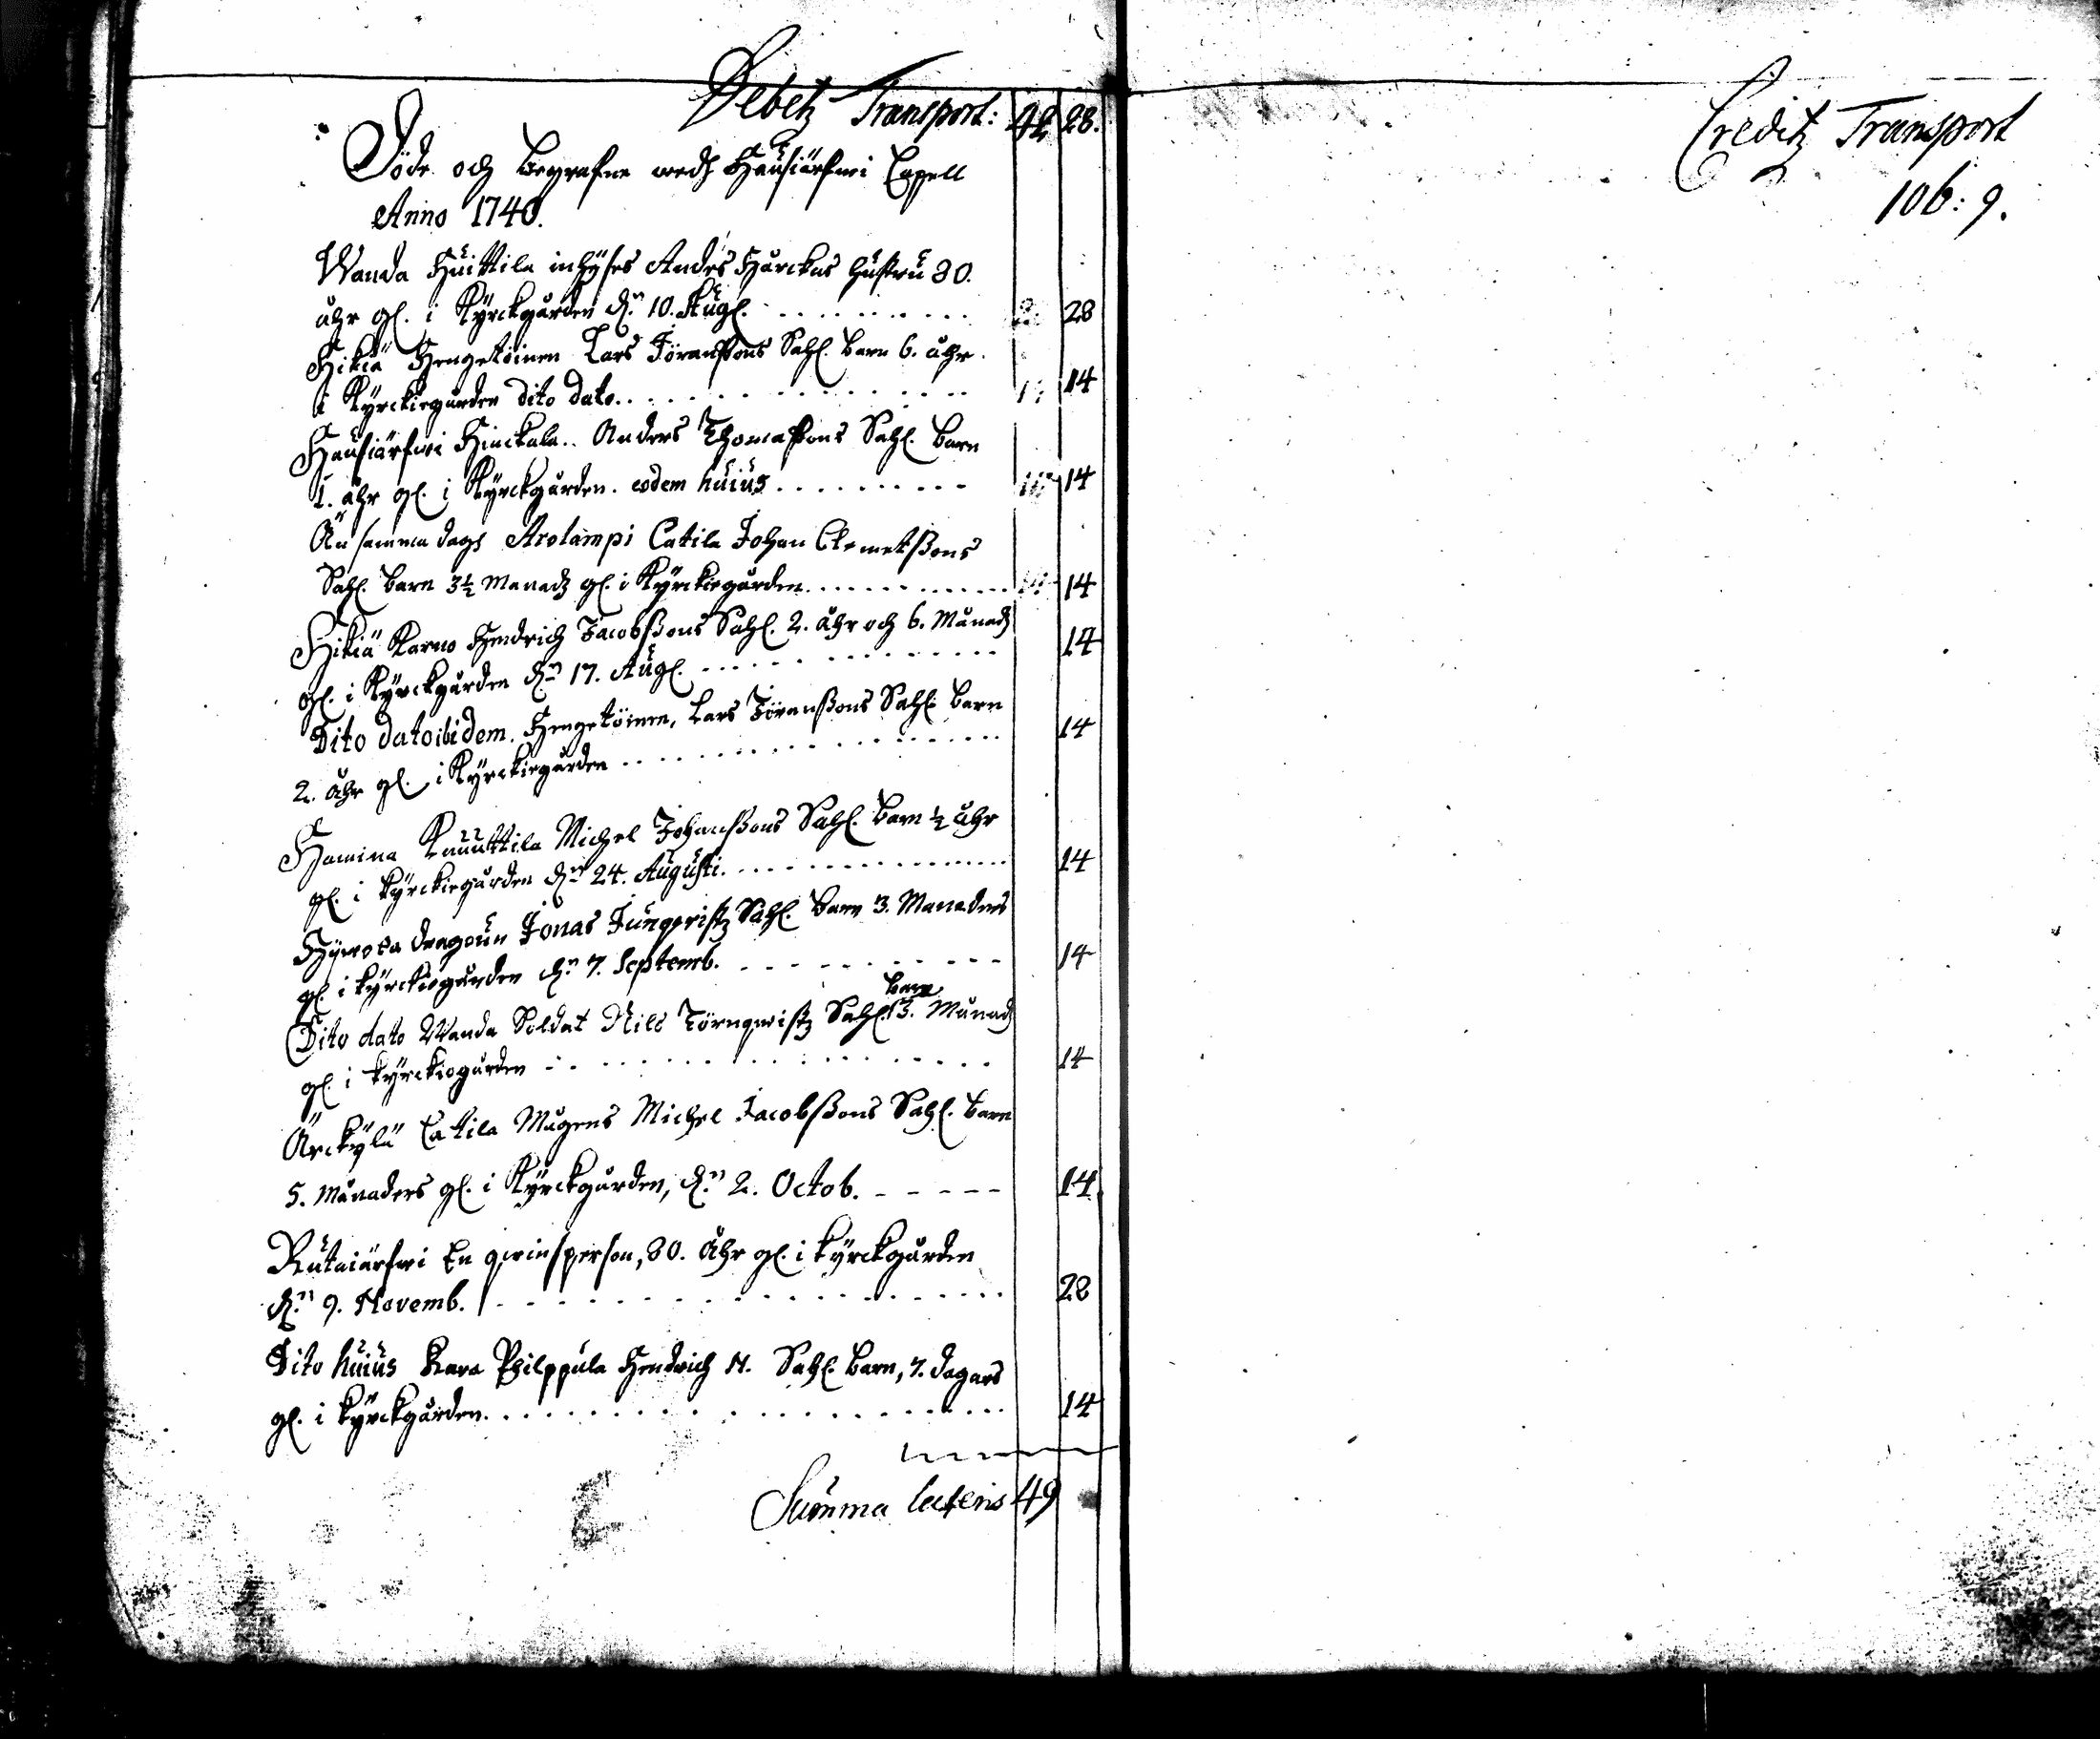 Debetz Transport: 42 28.
Döde och begrafne wedh Hausiärfwi Capell
Anno 1740.
Wanda Huittila inhyses Andrs Hurckas hustru 80.
åhr gl. i Kyrckgården d.n 10. Augl. . . . . . . . . . . 28
Hikiä Hengetöinen Lars Jöranssons Sahl. barn 6. åhr
i Kyrckiegården dito dato. . . . . . . . . . . . . . . 14
Hausiärfwi Hinckala.. Anders Thomassons Sahl. barn
1. åhr gl. i Kyrckgården. eodem huius . . . . . . . . . . 14
Än samma dags Arolampi Catila Johan Clemetßons
Sahl. barn 3½ Manadz gl. i Kyrckiegården. . . . . . . . . . 14
Hikiä Karno Hendrich Jacobßons Sahl. 2. åhr och 6. Månadz
gl. i Kyrckgården d.n 17. Augl. . . . . . . . . . . . . 14
Dito dato ibidem. Hengetöinen, Lars Jöranßons Sahl. barn
2. åhr gl. i Kyrckiegården . . . . . . . . . . . . . . 14
Hamina Knuuttila Michel Johanßons Sahl. barn ½ åhr
gl. i kyrckiegården d.n 24. Augusti. . . . . . . . . . . 14
Hywola dragoun Jonas Jungqvistz Sahl. barn 3. Manaders
gl. i kyrckiogården d.n 7. Septemb. - - - - - - - - - - 14
barn
Dito dato Wanda Soldat Nils Törnqwistz Sahl. 3. Månadz
gl. i kyrckiogården - - . . . . . . . . . . . . . . . 14
Ärckylä Catila Mågens Michel Jacobßons Sahl. barn
5. Månaders gl. i Kyrckgården, d.n 2. Octob. - - - - - 14
Rutaiärfwi En qwinsperson, 80. Åhr gl. i kyrckgården
d.n 9. Novemb. - - - - - - - - - - - - - - - - - - 28
Dito huius Kara Philppula Hendrich N. Sahl. barn, 7. dagars
gl. i kyrckgården. . . . . . . . . . . . . . . . . . . 14
Summa lateris 49
Creditz Transport
106: 9.